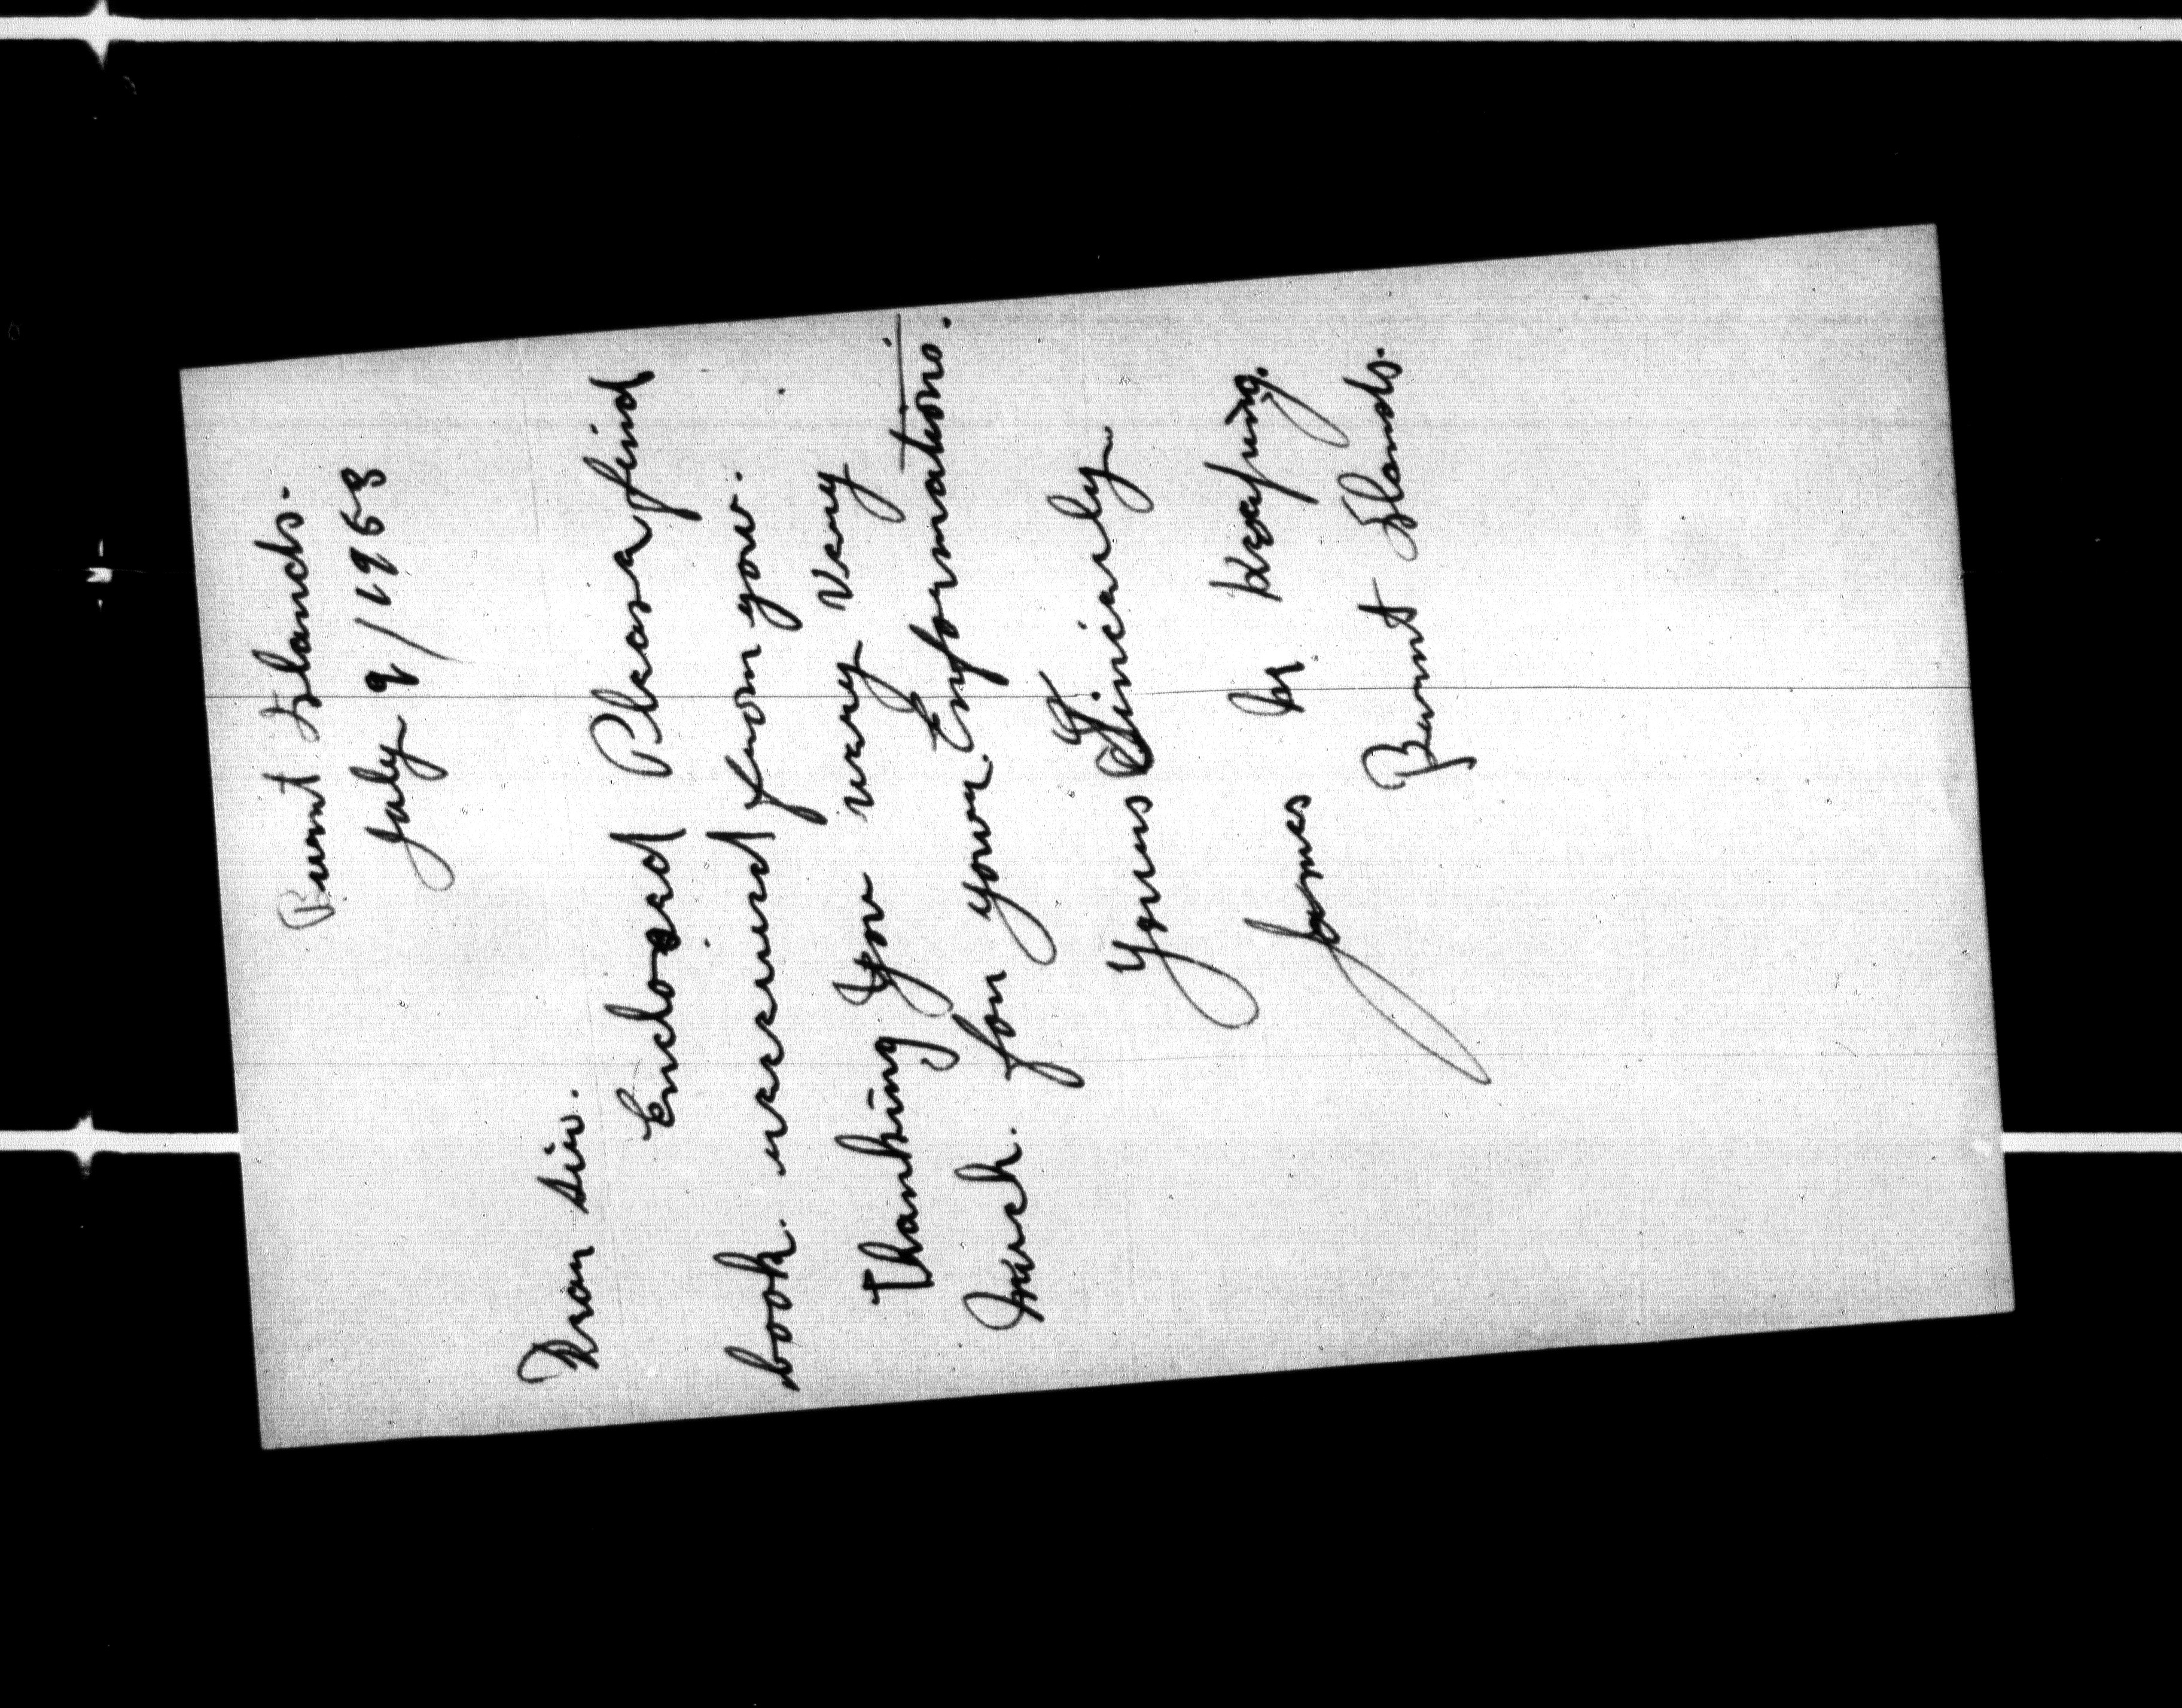 Burnt Islands.
July 9/1968
Dear Sir.
Enclosed Please find
book. received from you.
Thanking You very Very
Much. for your Enformations.
Yours Sincerly
James M Keeping.
Burnt Islands.